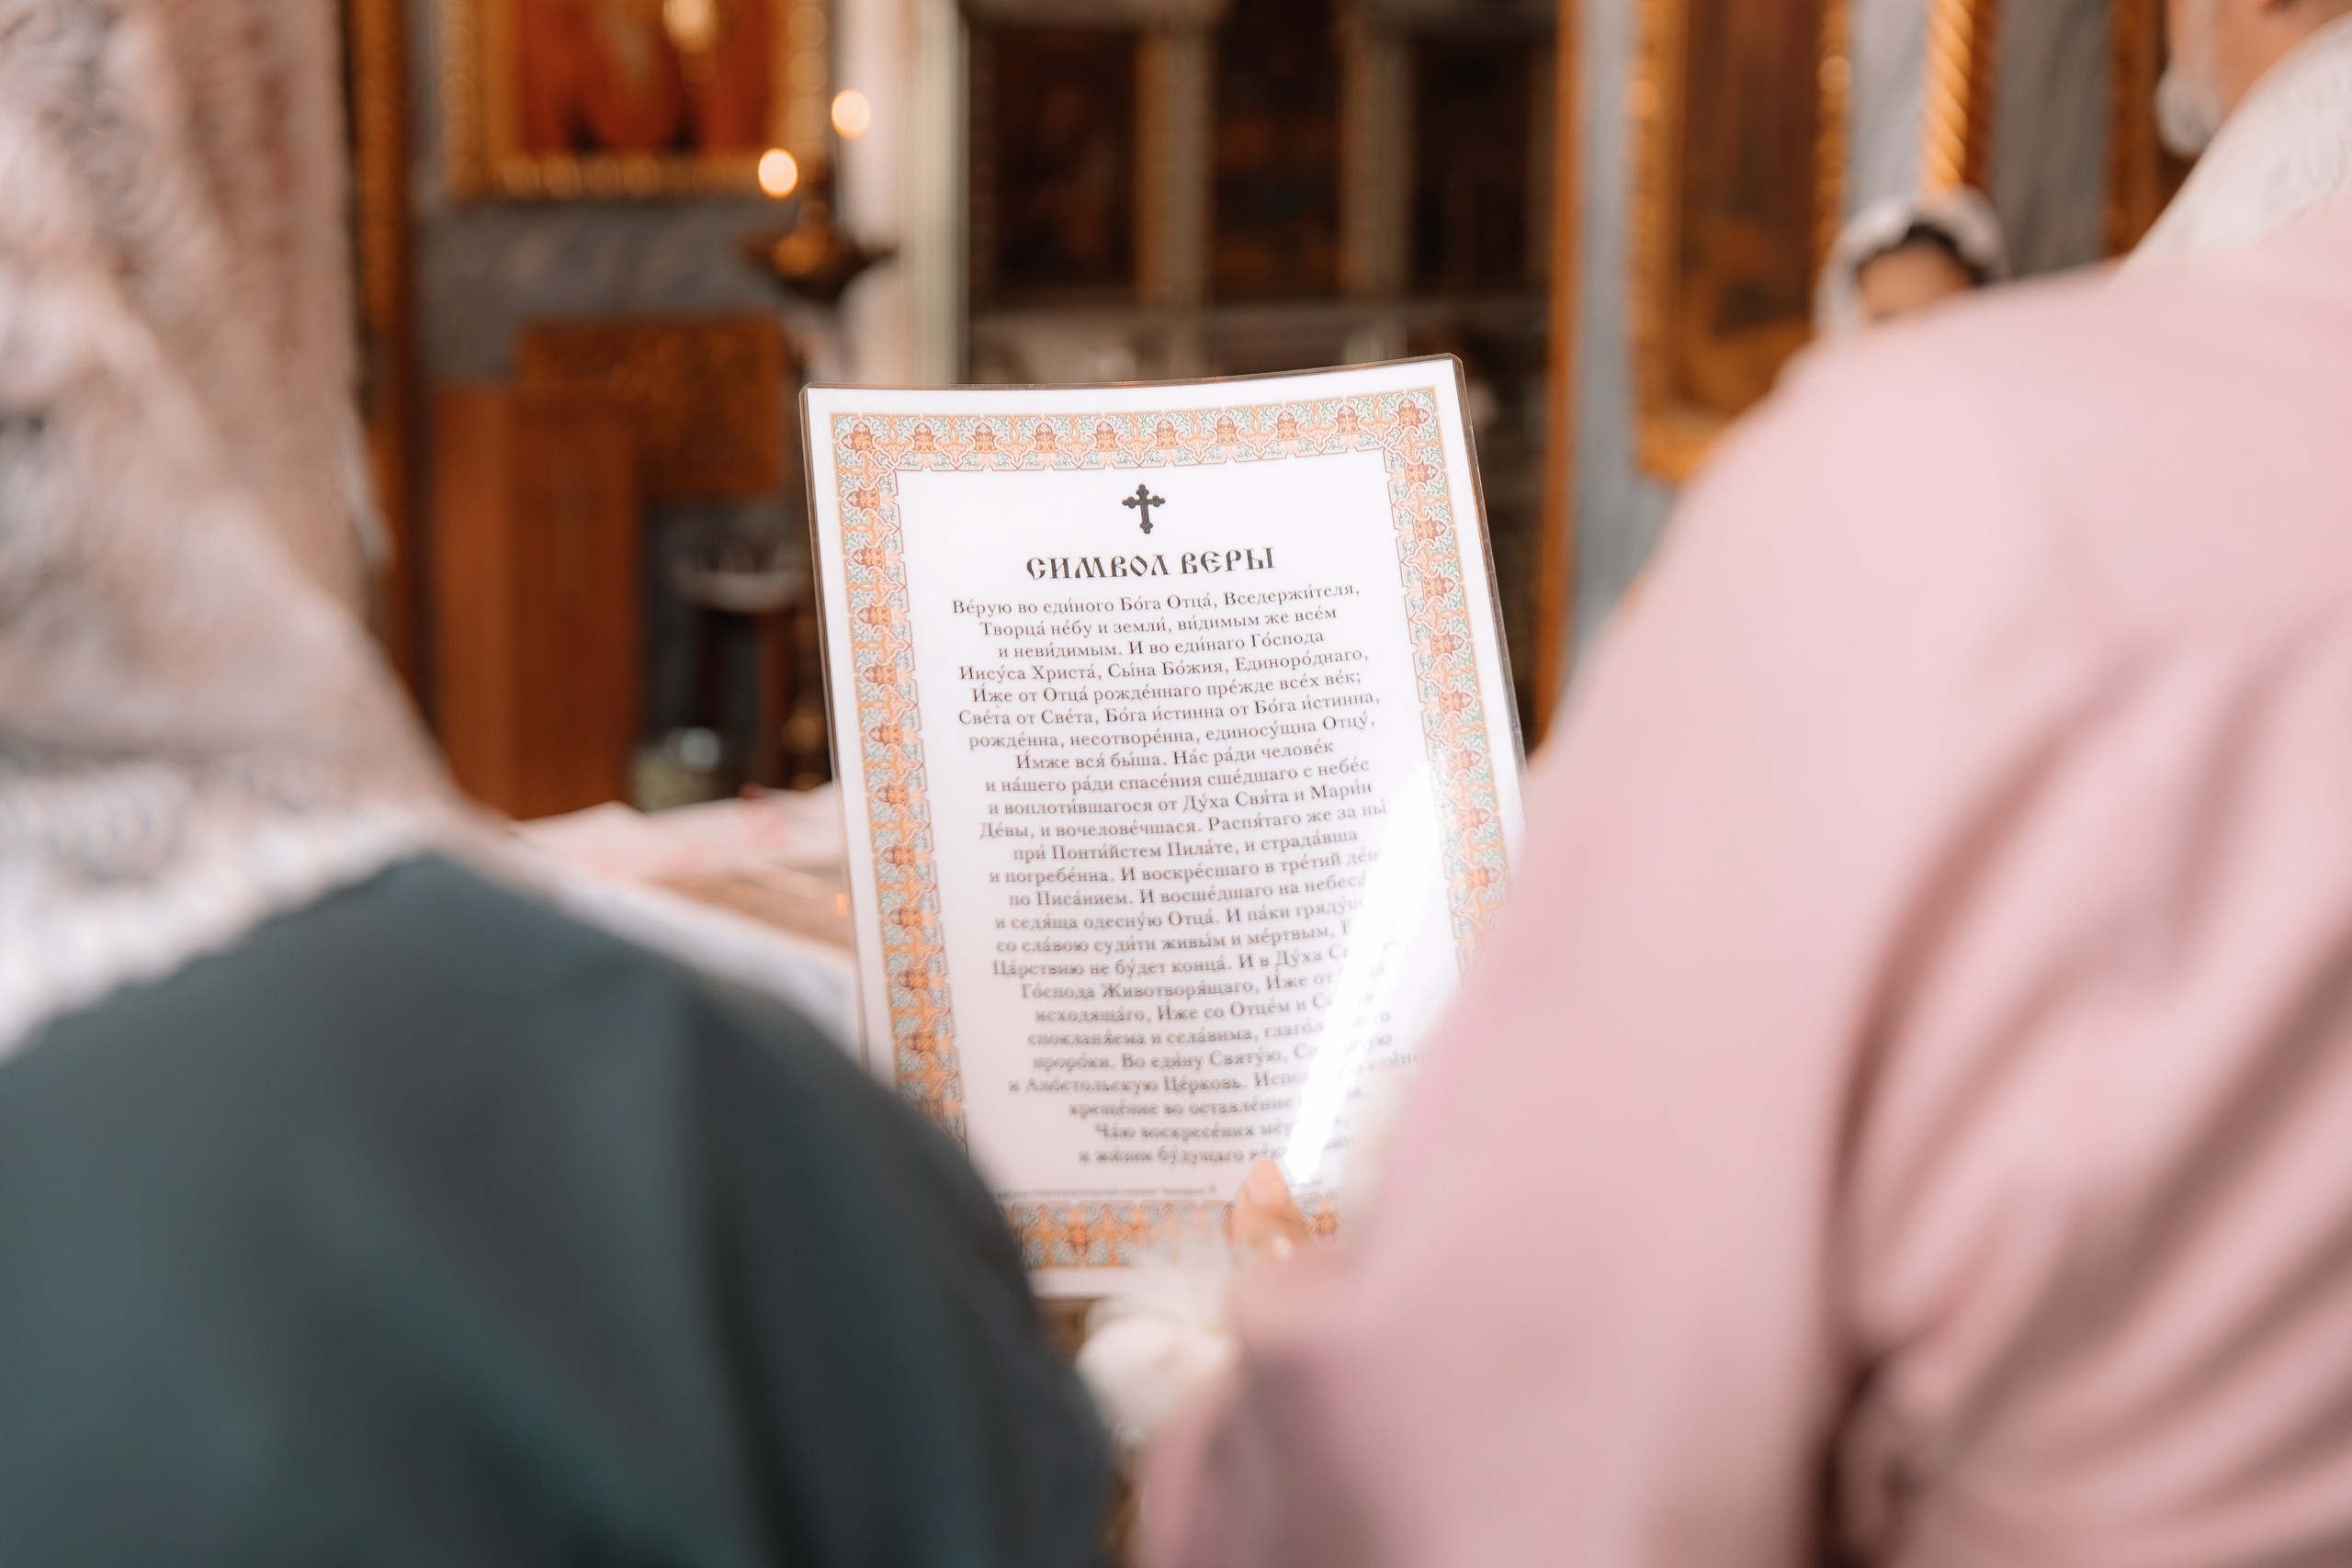 СИМВОЛ ВЕРЫ
Ве́рую во еди́ного Бо́га Отца́, Вседержи́теля,
Творца́ не́бу и земли́, ви́димым же все́м
и неви́димым. И во еди́наго Го́спода
Иису́са Христа́, Сы́на Бо́жия, Единоро́днаго,
И́же от Отца́ рожде́ннаго пре́жде все́х ве́к;
Све́та от Све́та, Бо́га и́стинна от Бо́га и́стинна,
рожде́нна, несотворе́нна, единосу́щна Отцу́,
И́мже вся́ бы́ша. На́с ра́ди челове́к
и на́шего ра́ди спасе́ния сше́дшаго с небе́с
и воплоти́вшагося от Ду́ха Свя́та и Мари́и
Де́вы, и вочелове́чшася. Распя́таго же за ны́
при́ Понти́йстем Пила́те, и страда́вша
и погребе́нна. И воскре́сшаго в тре́тий
по Писа́нием. И восше́дшаго на
и седя́ща одесну́ю Отца́. И па́ки
со сла́вою суди́ти живы́м и ме́ртвым,
Ца́рствию не бу́дет конца́. И в Ду́ха
Го́спода Животворя́щаго, И́же от
исходяща́го, И́же со Отце́м и
спокланя́ема и сла́вима,
проро́ки. Во еди́ну Святу́ю,
и Апо́стольскую Це́рковь.
креще́ние во оставле́ние
Ча́ю воскресе́ния
и жи́зни бу́дущаго